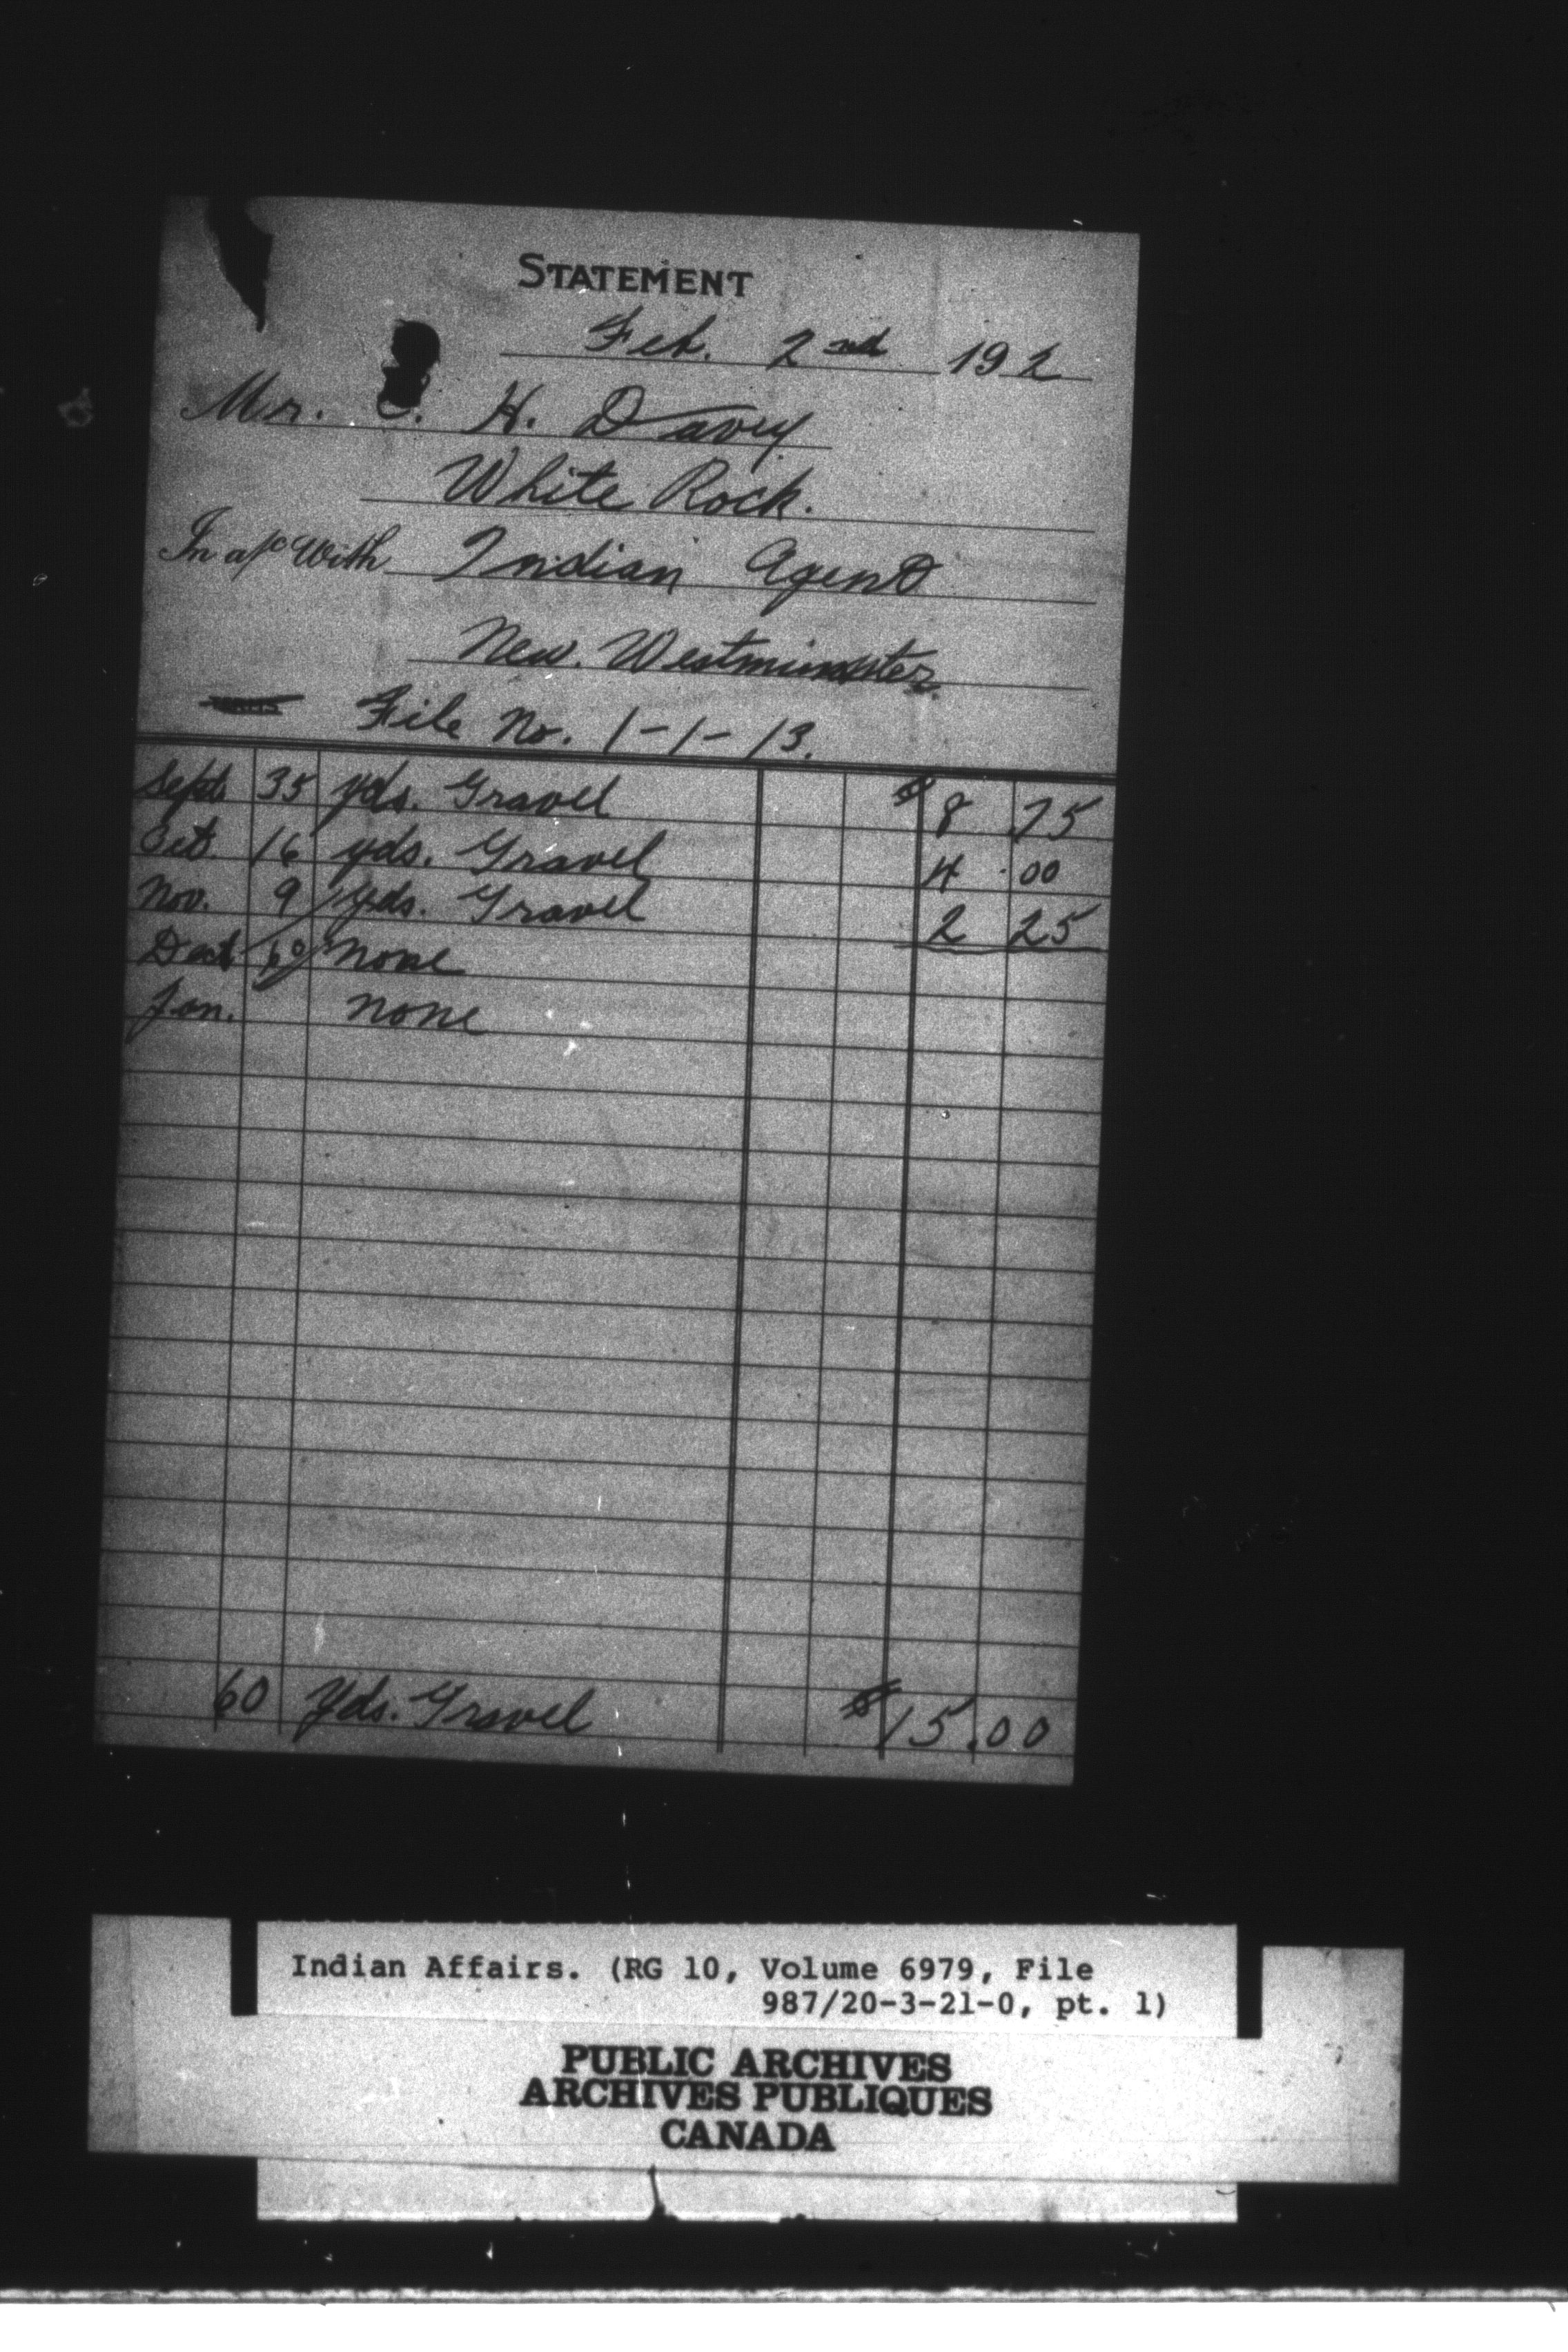 STATEMENT
Feb. 2nd 192
Mr. C. H. Davey
White Rock.
In a/c With Indian Agent
New. Westminster.
File No. 1-1-13.
Sept 35 yds. Gravel $ 8 75
Oct. 16 yds. Gravel 4 .00
Nov. 9 yds. Gravel 2 25
Dec none
Jan. none
60 Yds. Gravel $15.00
Indian Affairs. (RG 10, Volume 6979, File
987/20-3-21-0, pt. 1)
PUBLIC ARCHIVES
ARCHIVES PUBLIQUES
CANADA